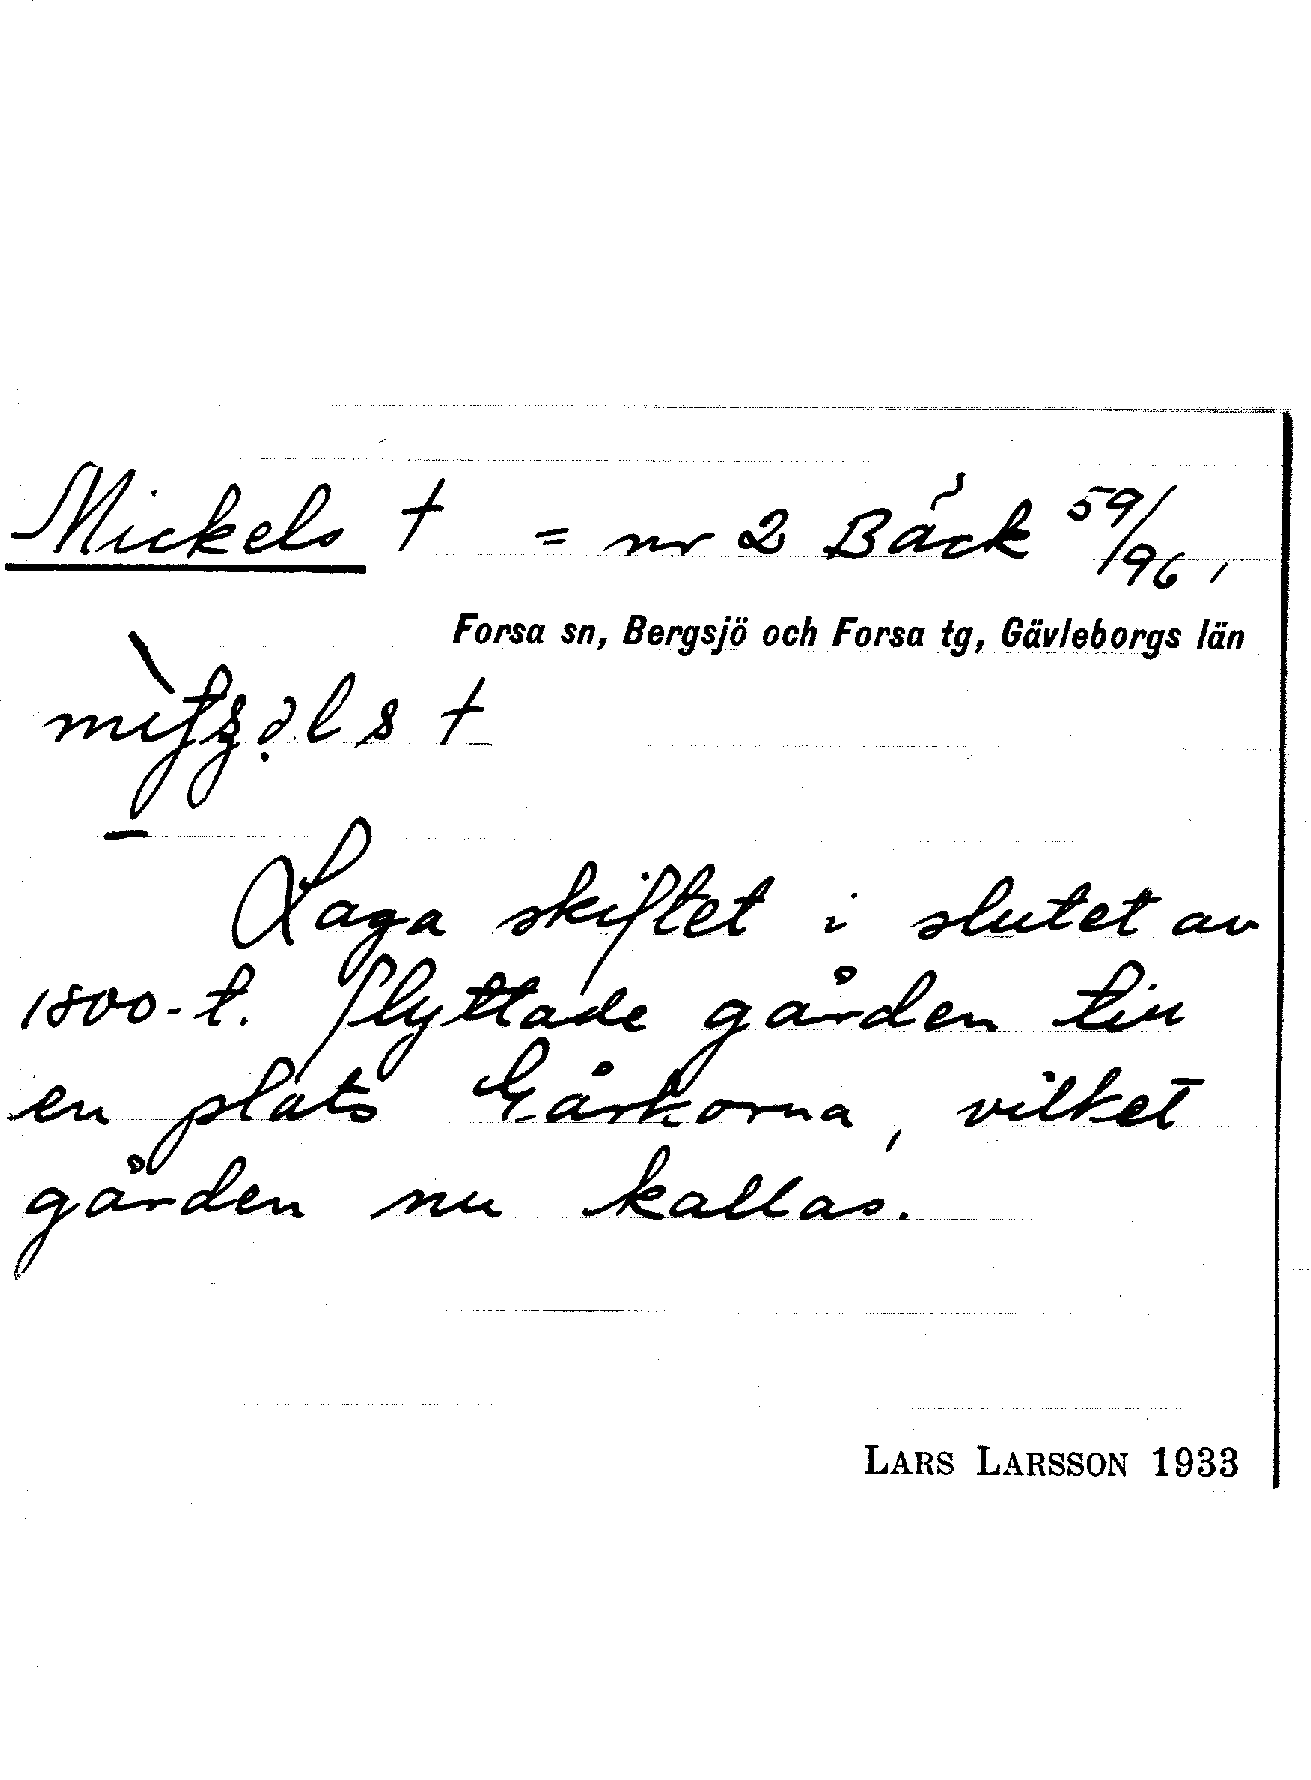 Mickels † = nr 2 Bäck 59/96
Forsa sn, Bergsjö och Forsa tg, Gävleborgs län
Laga skiftet i slutet av
1800-t. flyttade gården till
en plats Gårkorna, vilket
gården nu kallas.
LARS LARSSON 1933